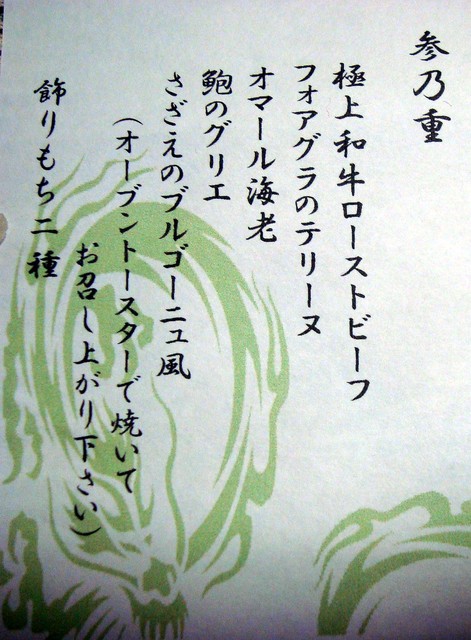 参乃重
極上和牛ローストビーフ
フォアグラのテリーヌ
オマール海老
鮑のグリエ
さざえのブルゴーニュ風
(オーブントースターで焼いて
お召し上がり下さい)
飾りもち二種